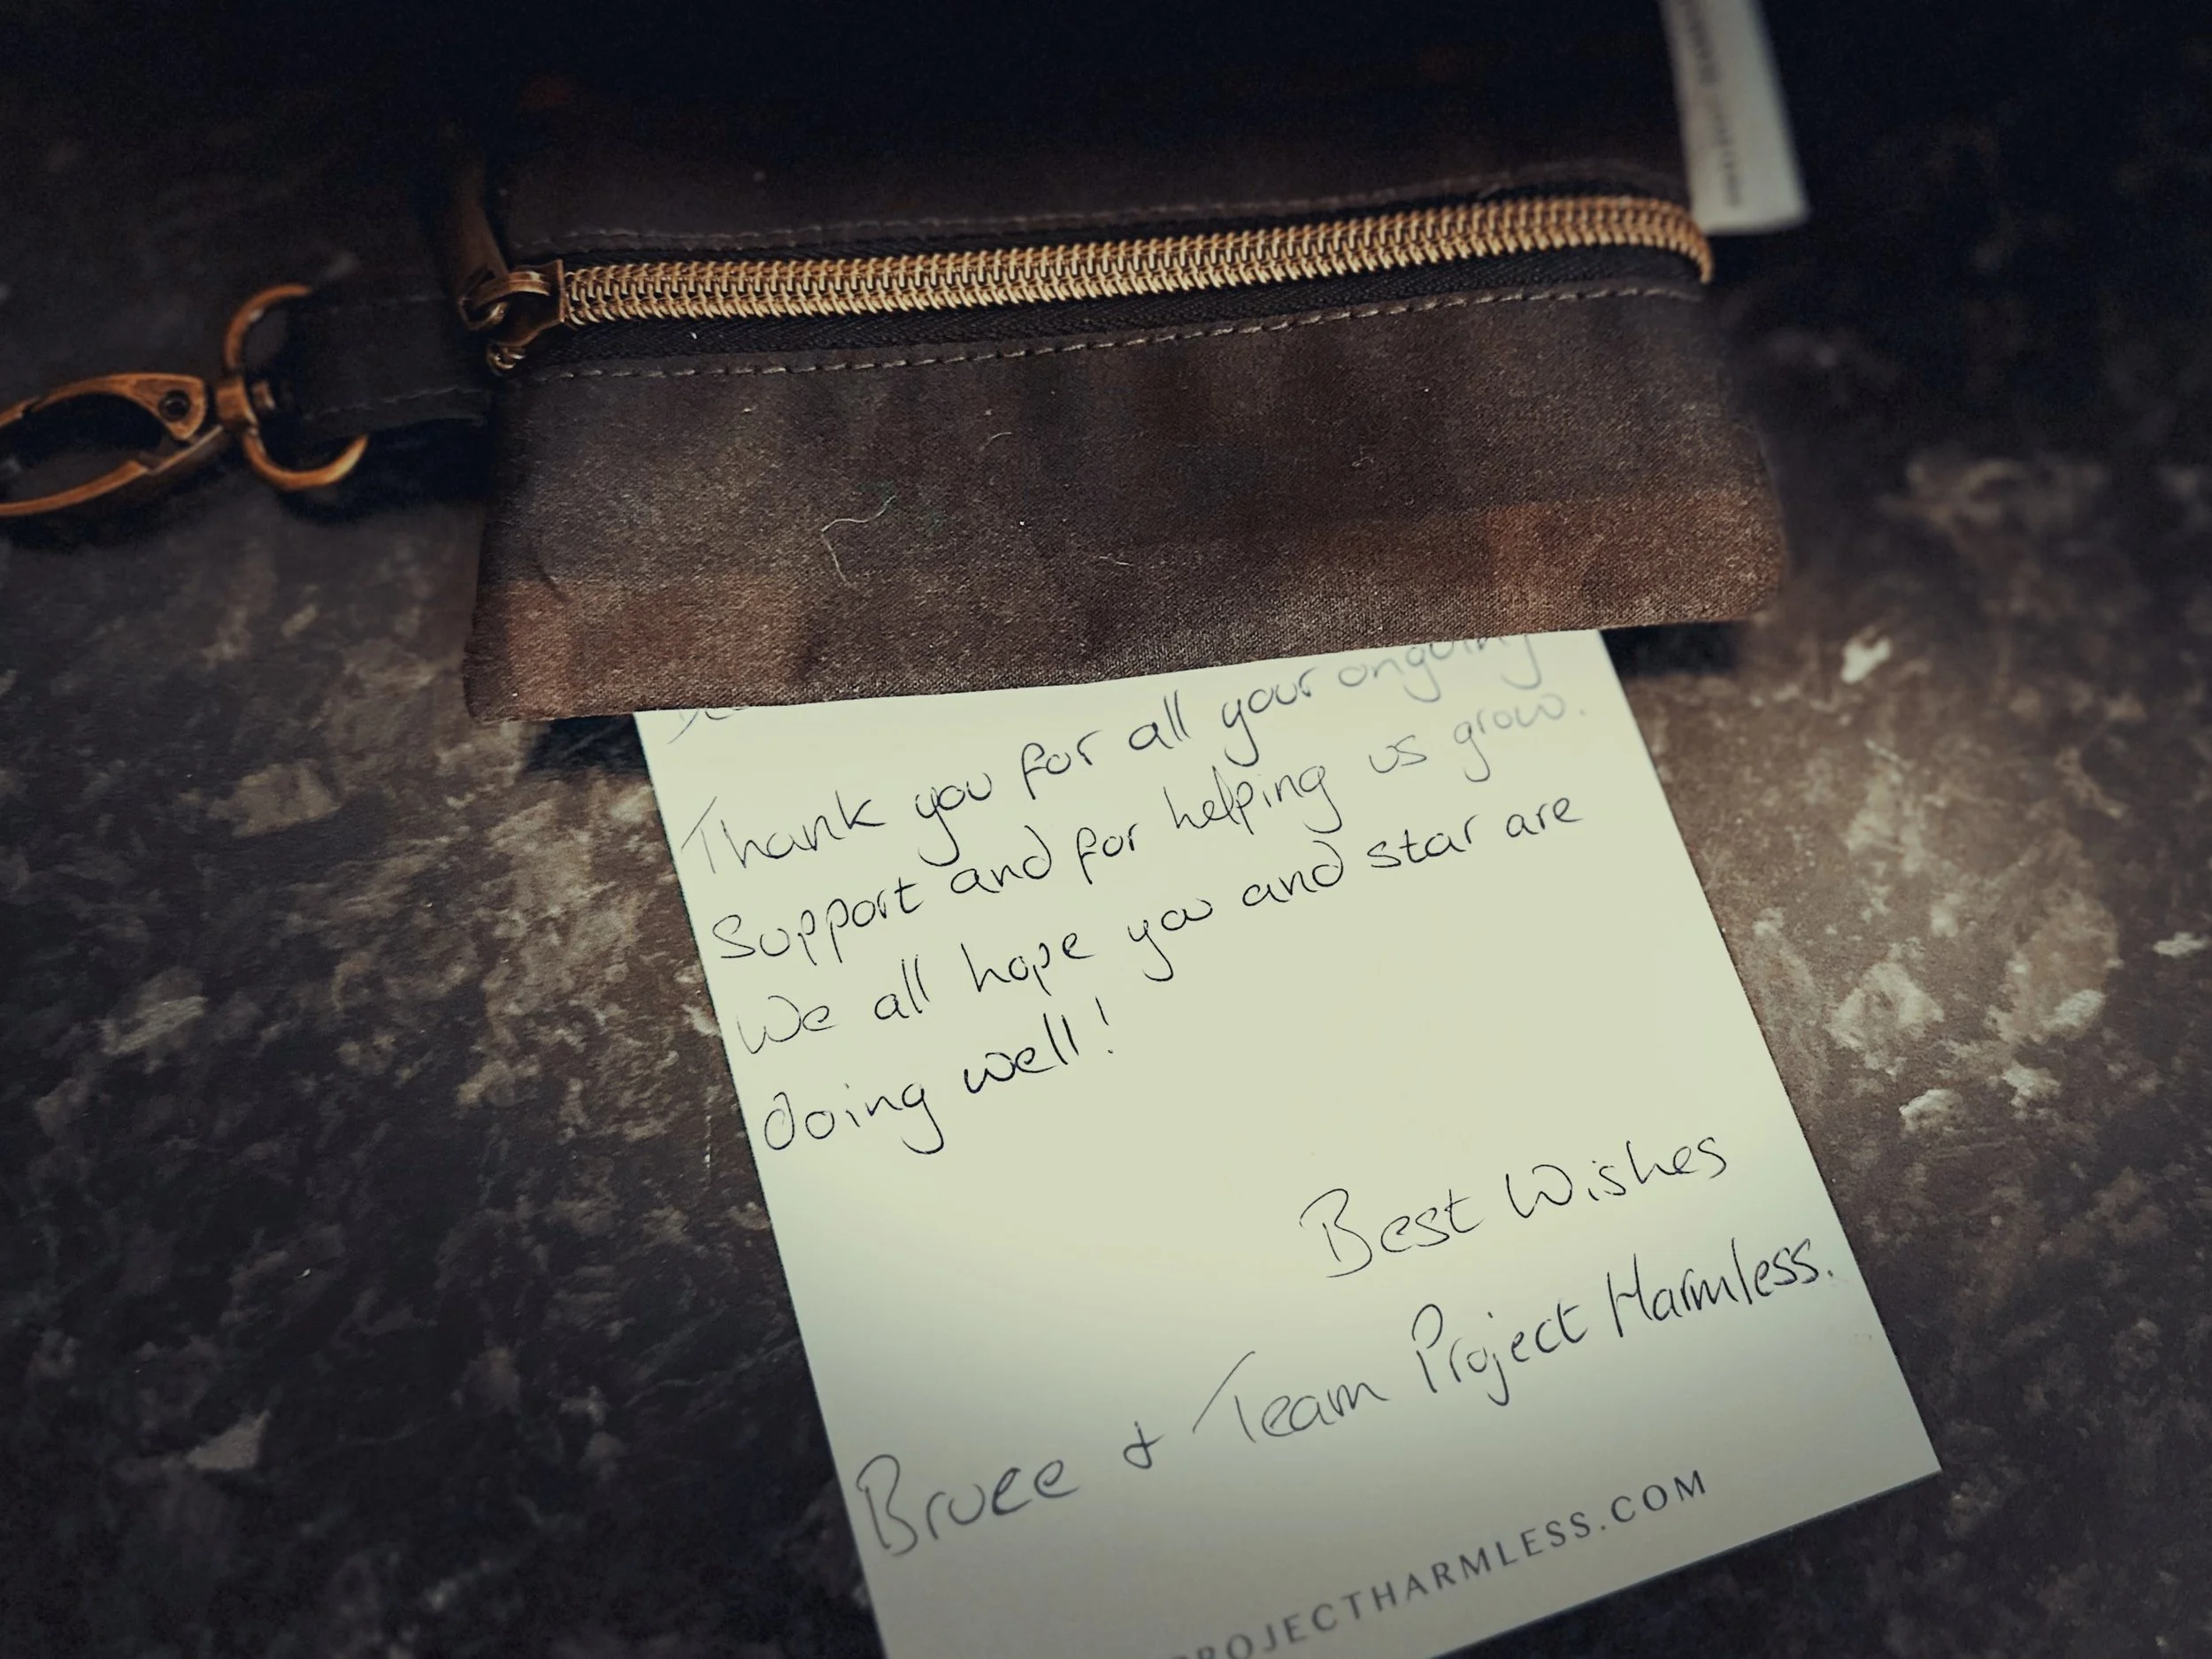 Thank you for all your ongoing
Support and for helping us grow.
We all hope you and star are
doing well!
Best Wishes
Bruce & Team Project Harmless.
PROJECTHARMLESS.COM